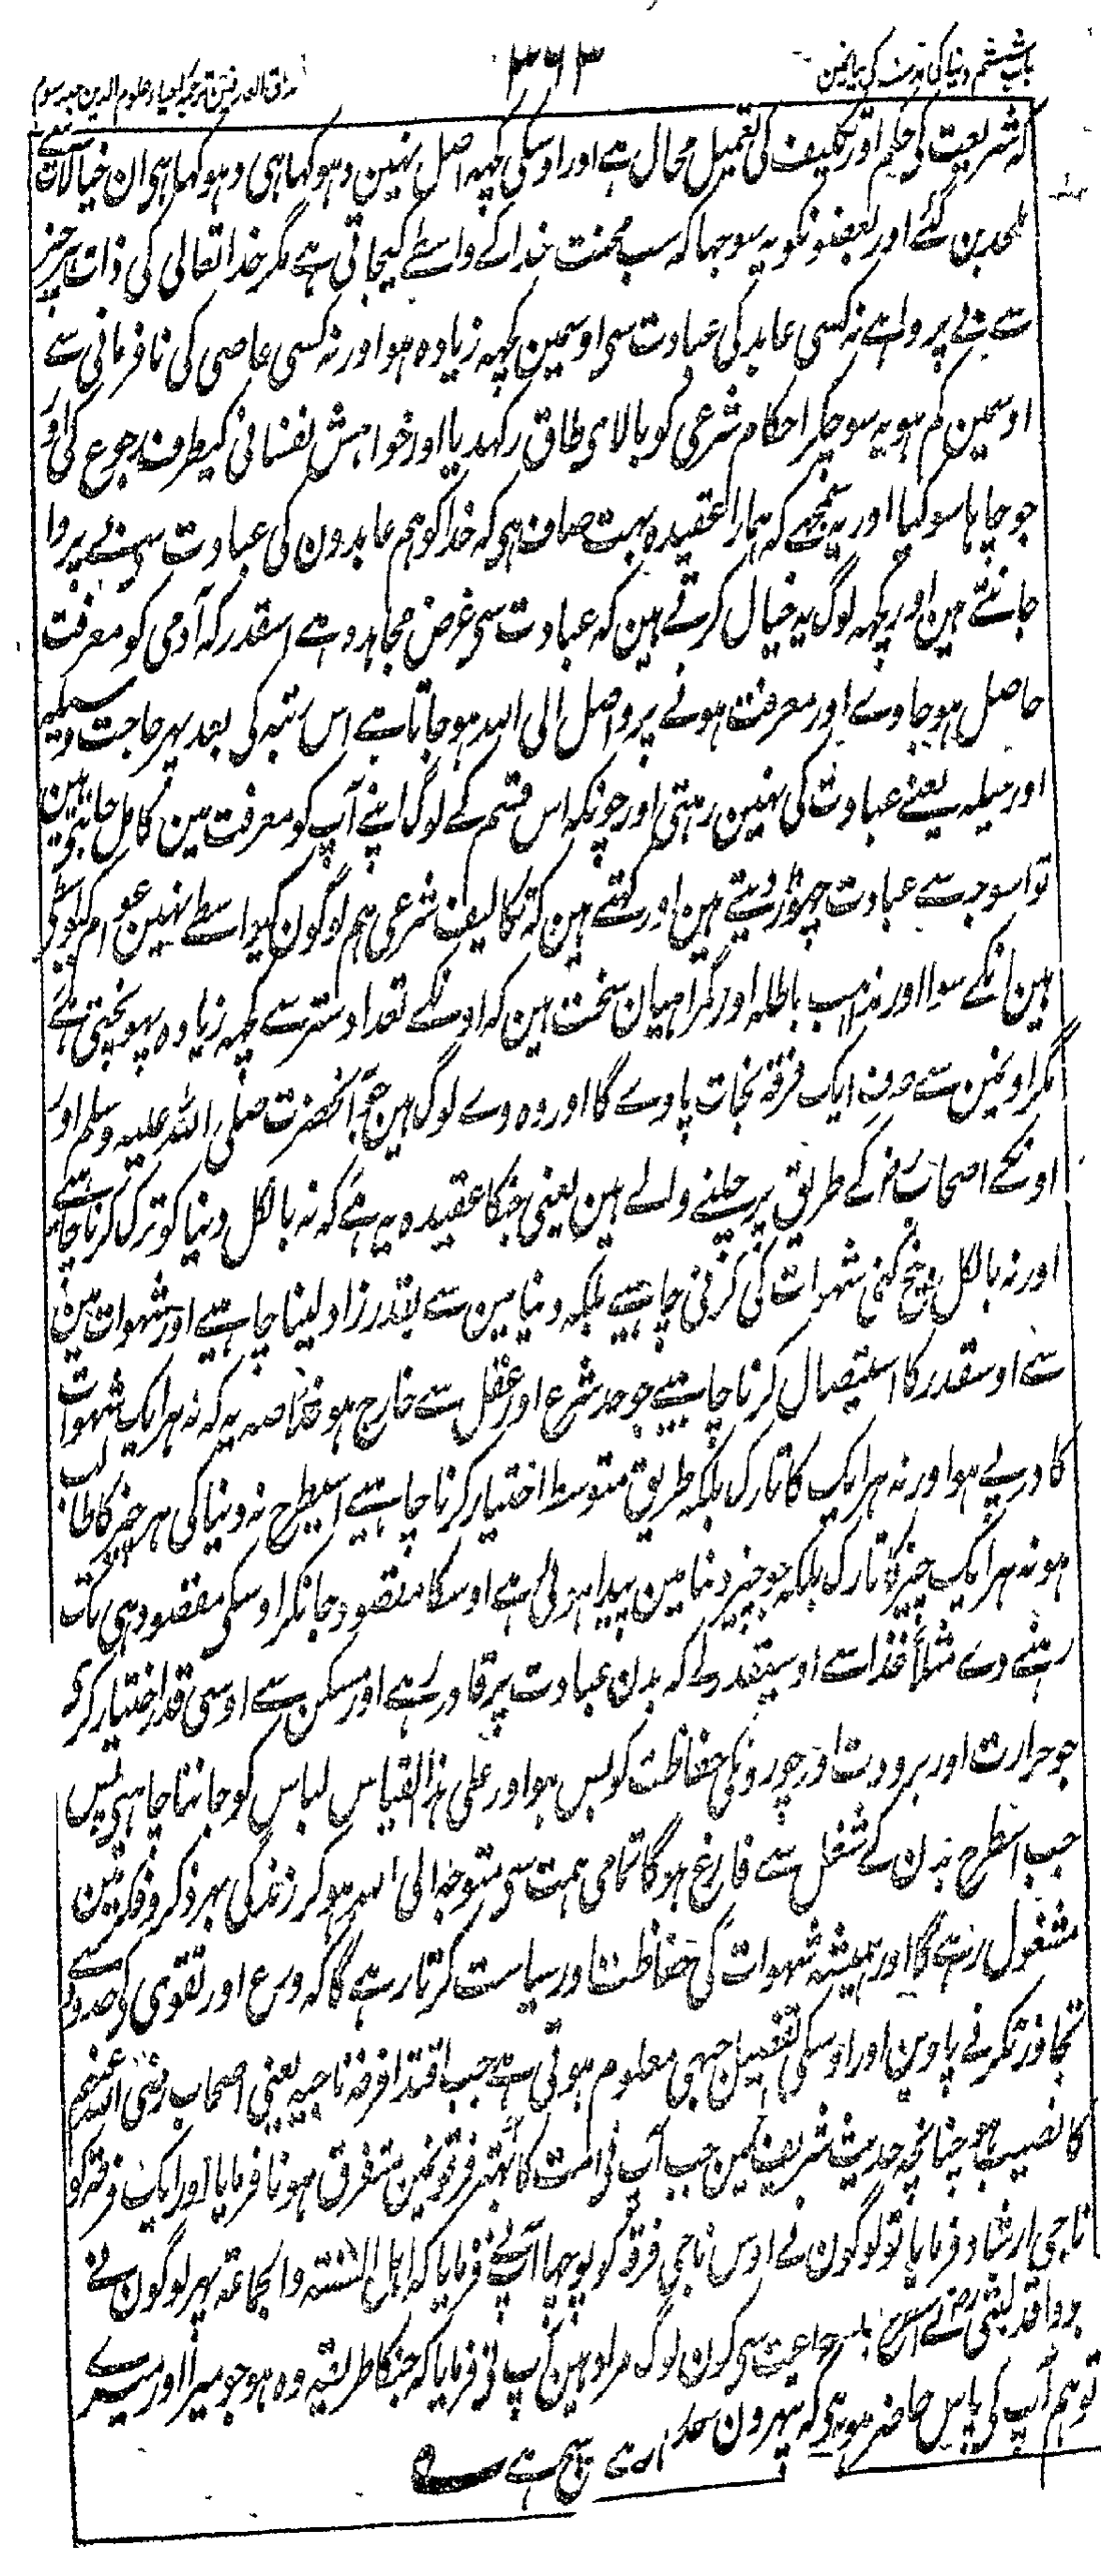 باب ششم دنیا کی مذمت کی بیانمین
۳۶۳
مذاق العارفین ترجمہ احیاء علوم الدین جلد سوم
کہ شریعت کی حکم اور تکلیف کی تعمیل محال ہے اور اوسکی کچہہ اصل نہین دہوکہا ہی دہوکہا ہی ان خیالات سے
ملحد بن گئے اور بعضونکو یہ سوجہا کہ سب محنت خدا کے واسطے کیجاتی ہے مگر خدا تعالی کی ذات ہر چیز
سے بے پروا ہے نہ کسی عابد کی عبادت سی اوسمین کچہہ زیادہ ہو اور نہ کسی عاصی کی نافرمانی سے
اوسمین کم ہو یہ سوچکر احکام شرعی کو بالای طاق رکہدیا اور خواہش نفسانی کیطرف رجوع کی اور
جو چاہا سو کیا اور یہ سمجھے کہ ہمارا عقیدہ بہت صاف ہی کہ خدا کو ہم عابدون کی عبادت سی بے پروا
جانتے ہین اور کچہہ لوگ یہ خیال کرتے ہین کہ عبادت سی غرض مجاہدہ ہے اسقدر کہ آدمی کو معرفت
حاصل ہو جاوے اور معرفت ہونے پر واصل الی اللہ ہو جاتا ہے اس رتبہ کی بعد پہر حاجت وسیلہ
اور حیلہ یعنے عبادت کی نہین رہتی اور چونکہ اس قسم کے لوگ اپنے آپ کو معرفت مین کامل جانتے ہین
تو اسوجہ سے عبادت چہوڑ دیتے ہین اور کہتے ہین کہ تکالیف شرعی ہم لوگون کیواسطے نہین عوام کیواسطے
ہین انکے سوا اور مذاہب باطلہ اور گمراہیان سخت ہین کہ اونکے تعداد ستر سے کچہہ زیادہ پہونچتی ہے
مگر اونمین سے صرف ایک فرقہ نجات پاوے گا اور وہ وے لوگ ہین جو آنحضرت صلی اللہ علیہ وسلم اور
اونکے اصحاب رض کے طریق پر چلنے والے ہین یعنی جنکا عقیدہ یہ ہے کہ نہ بالکل دنیا کو ترک کرنا چاہیے
اور نہ بالکل بیخ کنی شہوات کی کرنی چاہیے بلکہ دنیا مین سے بقدر زاد لینا چاہیے اور شہوات مین
سے اوسقدر کا استیصال کرنا چاہیے جو حد شرع اور عقل سے خارج ہو خلاصہ یہ کہ نہ ہر ایک شہوات
کا درپے ہو اور نہ ہر ایک کا تارک بلکہ طریق متوسط اختیار کرنا چاہیے اسیطرح نہ دنیا کی ہر چیز کا طالب
ہو نہ ہر ایک چیز کا تارک بلکہ جو چیز دنیا مین پیدا ہوئی ہے اوسکا مقصود جانکر اوسکی مقصود ہی تک
رہنے دے مثلاً غذا سے اوسیقدر لے کہ بدن عبادت پر قادر رہے اور مسکن سے اوسی قدر اختیار کری
جو حرارت اور برودت اور چورونکی حفاظت کو بس ہو اور علی ہذا القیاس لباس کو جاننا چاہیی پس
جب اسطرح بدن کے شغل سے فارغ ہوگا تمامی ہمت سی متوجہ الی اللہ ہو کر زندگی بہر ذکر و فکر مین
مشغول رہے گا اور ہمیشہ شہوات کی حفاظت اور سیاست کرتا رہے گا کہ ورع اور تقوی کی حدود سے
تجاوز نکرنے پاوین اور اوسکی تفصیل جبہی معلوم ہوتی ہے جب اقتدا فرقہ ناجیہ یعنی اصحاب رضی اللہ عنہم
کا نصیب ہو چنانچہ حدیث شریف مین جب آپ نی امت کا بہتر فرقونمین متفرق ہونا فرمایا اور ایک فرقہ کو
ناجی ارشاد فرمایا تو لوگون نے اوس ناجی فرقہ کو پوچہا آپنے فرمایا کہ اہل السنتہ والجماعتہ پہر لوگون نے
جماعت سی کون لوگ مراد ہین آپ نی فرمایا کہ جنکا طریقہ وہ ہو جو میرا اور میرے
تو ہم آپ کی پاس حاضر ہوئی کہ پہرون